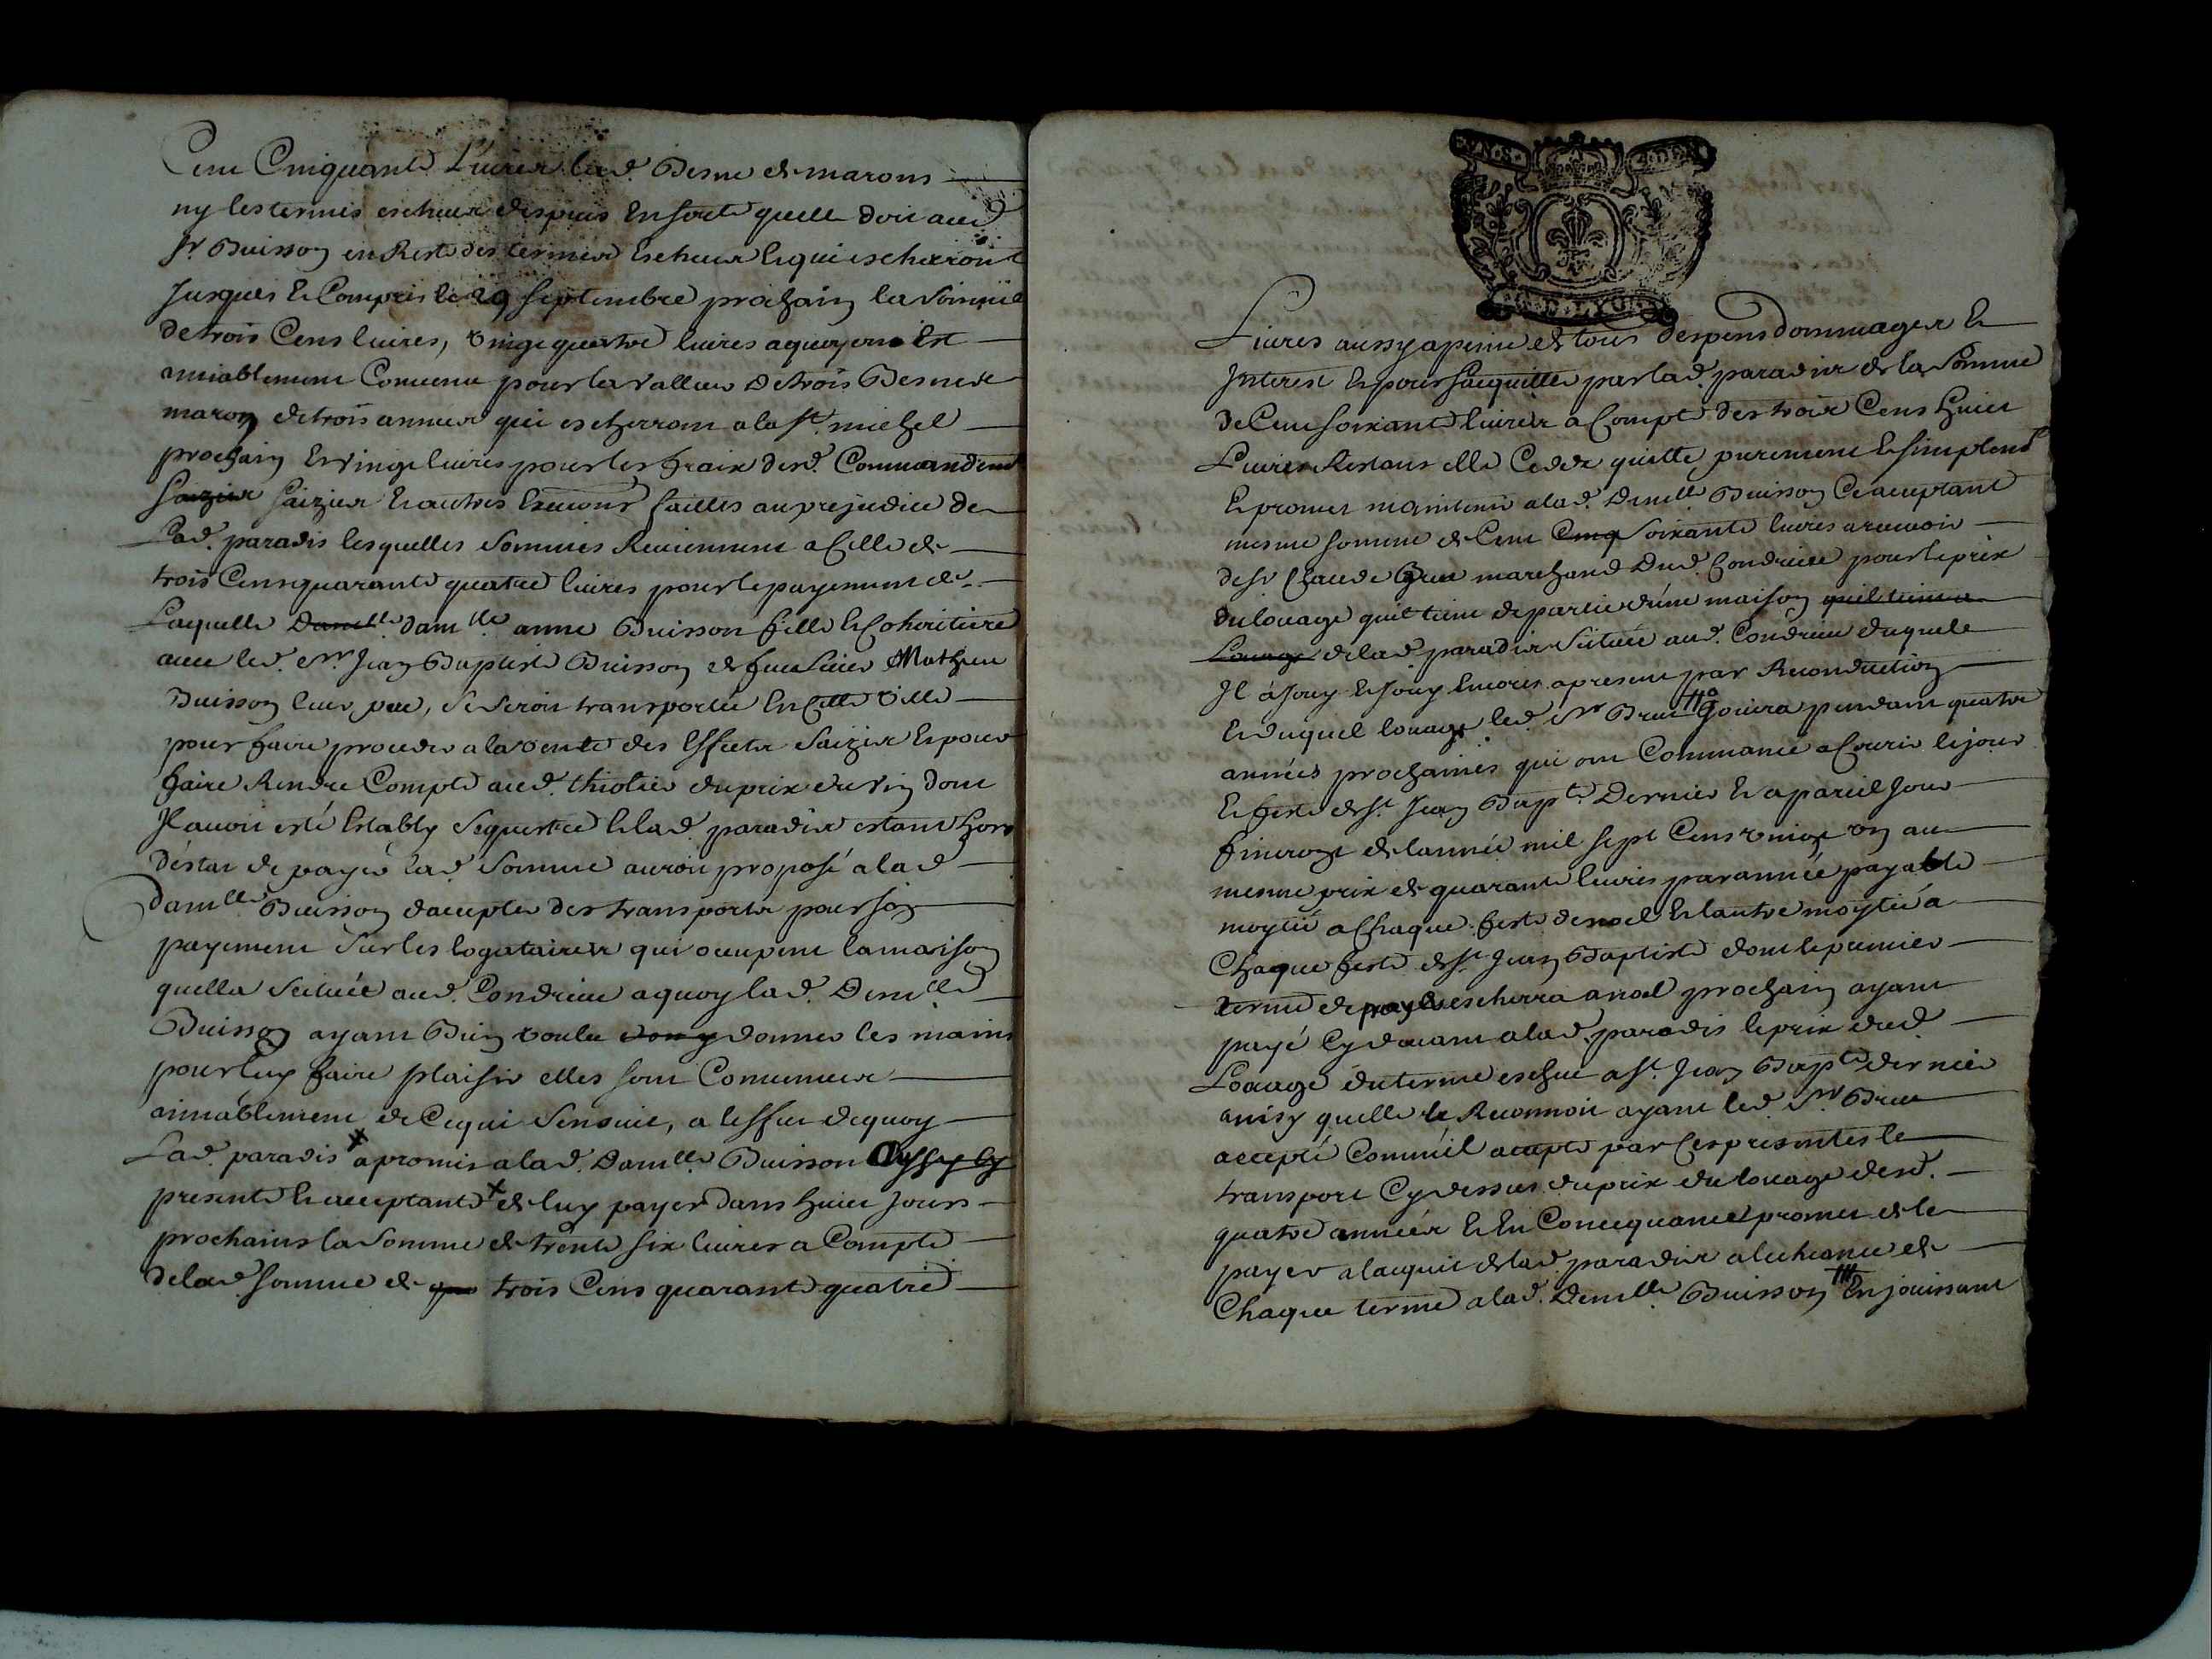 Cent Cinquante Livres lad. Besne de marons
ny les termes escheus despuis En sorte quelle doit aud
sr. Buisson en Reste des termes Escheus Et qui escherront
Jusques Et Compris le 29 septembre prochain la Somme
de trois Cens livres, vingt quatre livres a quoy on Est
amiablement Convenu pour la valleur de trois Besnes
maron de trois années qui escherront a la st. michel
prochain Et vingt livres pour les fraix desd. Commandemt
Saizies Saizies Et autres Execuons faittes au prejudice de
Lad. paradis lesquelles Sommes Reviennent a Celle de
trois Cens quarante quatre livres pour le payement de
Laquelle Damlle. damlle. anne Buisson fille Et Coheritiere
avec led. Sr. Jean Baptiste Buisson de feu Sieur Mathieu
Buisson leur pere, Se Seroit transportée En Cette Ville
pour faire proceder a la vente des Effects Saizies Et pour
faire Rendre Compte aud. thiolier du prix du vin dont
Il avoit esté Estably Sequestre Et lad. paradis estant hors
d'estat de payer lad. Somme auroit proposé a lad
damlle Buisson daccepter des transports pour son
payement Sur les logataires qui occupent la maison
quella Scituée aud. Condrieu a quoy lad. Demlle
Buisson ayant Bien voulu donner les mains
pour luy faire plaisir elles sont Convenues
aimablement de Ce qui Sensuit, a leffet de quoy
Lad. paradis x a promis a lad. Damlle. Buisson Ayssy Cy
presente Et acceptante x de luy payer dans huict Jours
prochains la Somme de trente six livres a Compte
de lad. somme de trois Cens quarante quatre
F. LYON
Livres aussy a peine de tous despens dommages Et
Interest Et pour Sacquitter par lad. paradis de la Somme
de Cent soixante livres a Compte des trois Cens huict
Livres Restans elle Cedde quitte purement Et simplemt
Et promet maintenir a lad. Demlle Buisson Ce acceptant
mesme somme de Cent Cinq Soixante livres a recevoir
de sr. Claude Brun marchand Dud. Condrieu pour le prix
du louage quil tient de partie d'une maison quil tient a
Louage de lad. paradis Scituée aud. Condrieu duquel
Il a Jouy Et Jouy Encores a present par Reconduction
Et duquel louage led. Sr Brun # Jouira pendant quatre
années prochaines qui ont Commancé a Courir le jour
Et feste de st. Jean Bapte. Dernier Et a pareil Jour
finiront de lannée mil sept Cens vingt un au
mesme prix de quarante livres par année payable
moytié a Chaque feste de noel Et lautre moytié a
Chaque feste de st Jean Baptiste dont le premier
terme de paye escherra a noel prochain ayant
payé Cy devant a lad. paradis le prix dud
Louage du terme escheu a st. Jean Bapte dernier
ainsy quelle le Reconnoit ayant led. Sr. Brun
accepté Comme il accepte par Ces presentes le
transport Cy dessus du prix du louage desd.
quatre années Et En Consequance promet de le
payer a lacquit de lad. paradis a lecheance de
Chaque terme a lad. Demlle Buisson # En jouissant